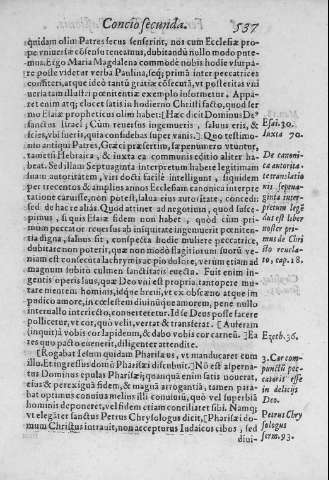 Concio secunda. 537
quidam olim Patres secus senserint, nos cum Ecclesiæ pro-
pe vniuersæ cōsensu teneamus, dubitandū nullo modo pute-
mus. Ergo Maria Magdalena commodè nobis hodie vsurpa-
re posse videtur verba Paulina, seq; primā inter peccatrices
confiteri, atque ideò tantā gratiā cōsecutā, vt posteritas vni
uersa tam illustri pœnitentiæ exemplo informetur. Appa-
ret enim atq; elucet satis in hodierno Christi facto, quod ser
mo Elaiæ propheticus olim habet: [Hæc dicit Dominus De-
sanctus Israel; Cùm reuersus ingemueris, saluus eris, &
scies, vbi fueris, quia confidebas super vanis.] Quo testimo-
nio antiqui Patres, Græci præsertim, sæpenumero vtuntur,
tametsi Hebraica, & iuxta ea communis editio aliter ha-
beat. Sed illam Septuaginta interpretum habere legitimam
suam autoritatem, viri docti facilè intelligunt, siquidem
per trecentos & amplios annos Ecclesiam canonica interpre
tatione caruisse, non potest, salua eius autoritate, concedi:
sed de hac re aliàs. Quod attinet ad negotium, quod susce-
pimus, si quis Elaiæ fidem non habet, quòd cùm pri-
mum peccator reuersus ab iniquitate ingemuerit pœniten-
tia digna, saluus sit, conspecta hodie muliere peccatrice,
dubitare non poterit, quæ non modò flagitiorum suorū ve-
niam est consecuta lachrymis ac pio dolore, verùm etiam ad
magnum subitò culmen sanctitatis euecta. Fuit enim in-
gentis operis huius, quæ Deo vni est propria, tantopere mu-
tare mentem hominis, idque breui, vt ex obscœno atque im
pudico amore, in cœlestem diuinumque amorem, penè nullo
interuallo interiecto, conuerteretur. Id se Deus posse facere
pollicetur, vt cor, quò velit, vertat & transferat. [Auferam
(inquit) à vobis cor lapidum, & dabo vobis cor carneū.] Ea
res quo pacto euenerit, diligenter attendite.
[Rogabat Iesum quidam Pharisæus, vt manducaret cum
illo. Et ingressus domū Pharisæi discubuit.] Nō est asperna-
tus Dominus epulas Pharisæi, quanquā enim satis nouerat,
eius & perexiguā fidem, & magnā arrogantiā, tamen para-
bat optimus conuiua melius illi conuiuiū, quo vel superbiā
hominis deponeret, vel fidem etiam conciliaret sibi. Namq;
vt eleganter sanctus Petrus Chrysologus dicit, [Pharisæi do-
mum Christus intrauit, non accepturus Iudaicos cibos, sed
diui-
Esai. 30.
iuxta 70.
De canoni-
ca autorita-
te translatio
nis septua-
ginta inter-
pretum legē
dus est liber
noster pri-
mus de Chri
sto reuela-
to, cap. 18.
Ezech. 36.
3. Cor com-
punctū pec-
catoris esse
in delicijs
Deo.
Petrus Chry
sologus
serm. 93.